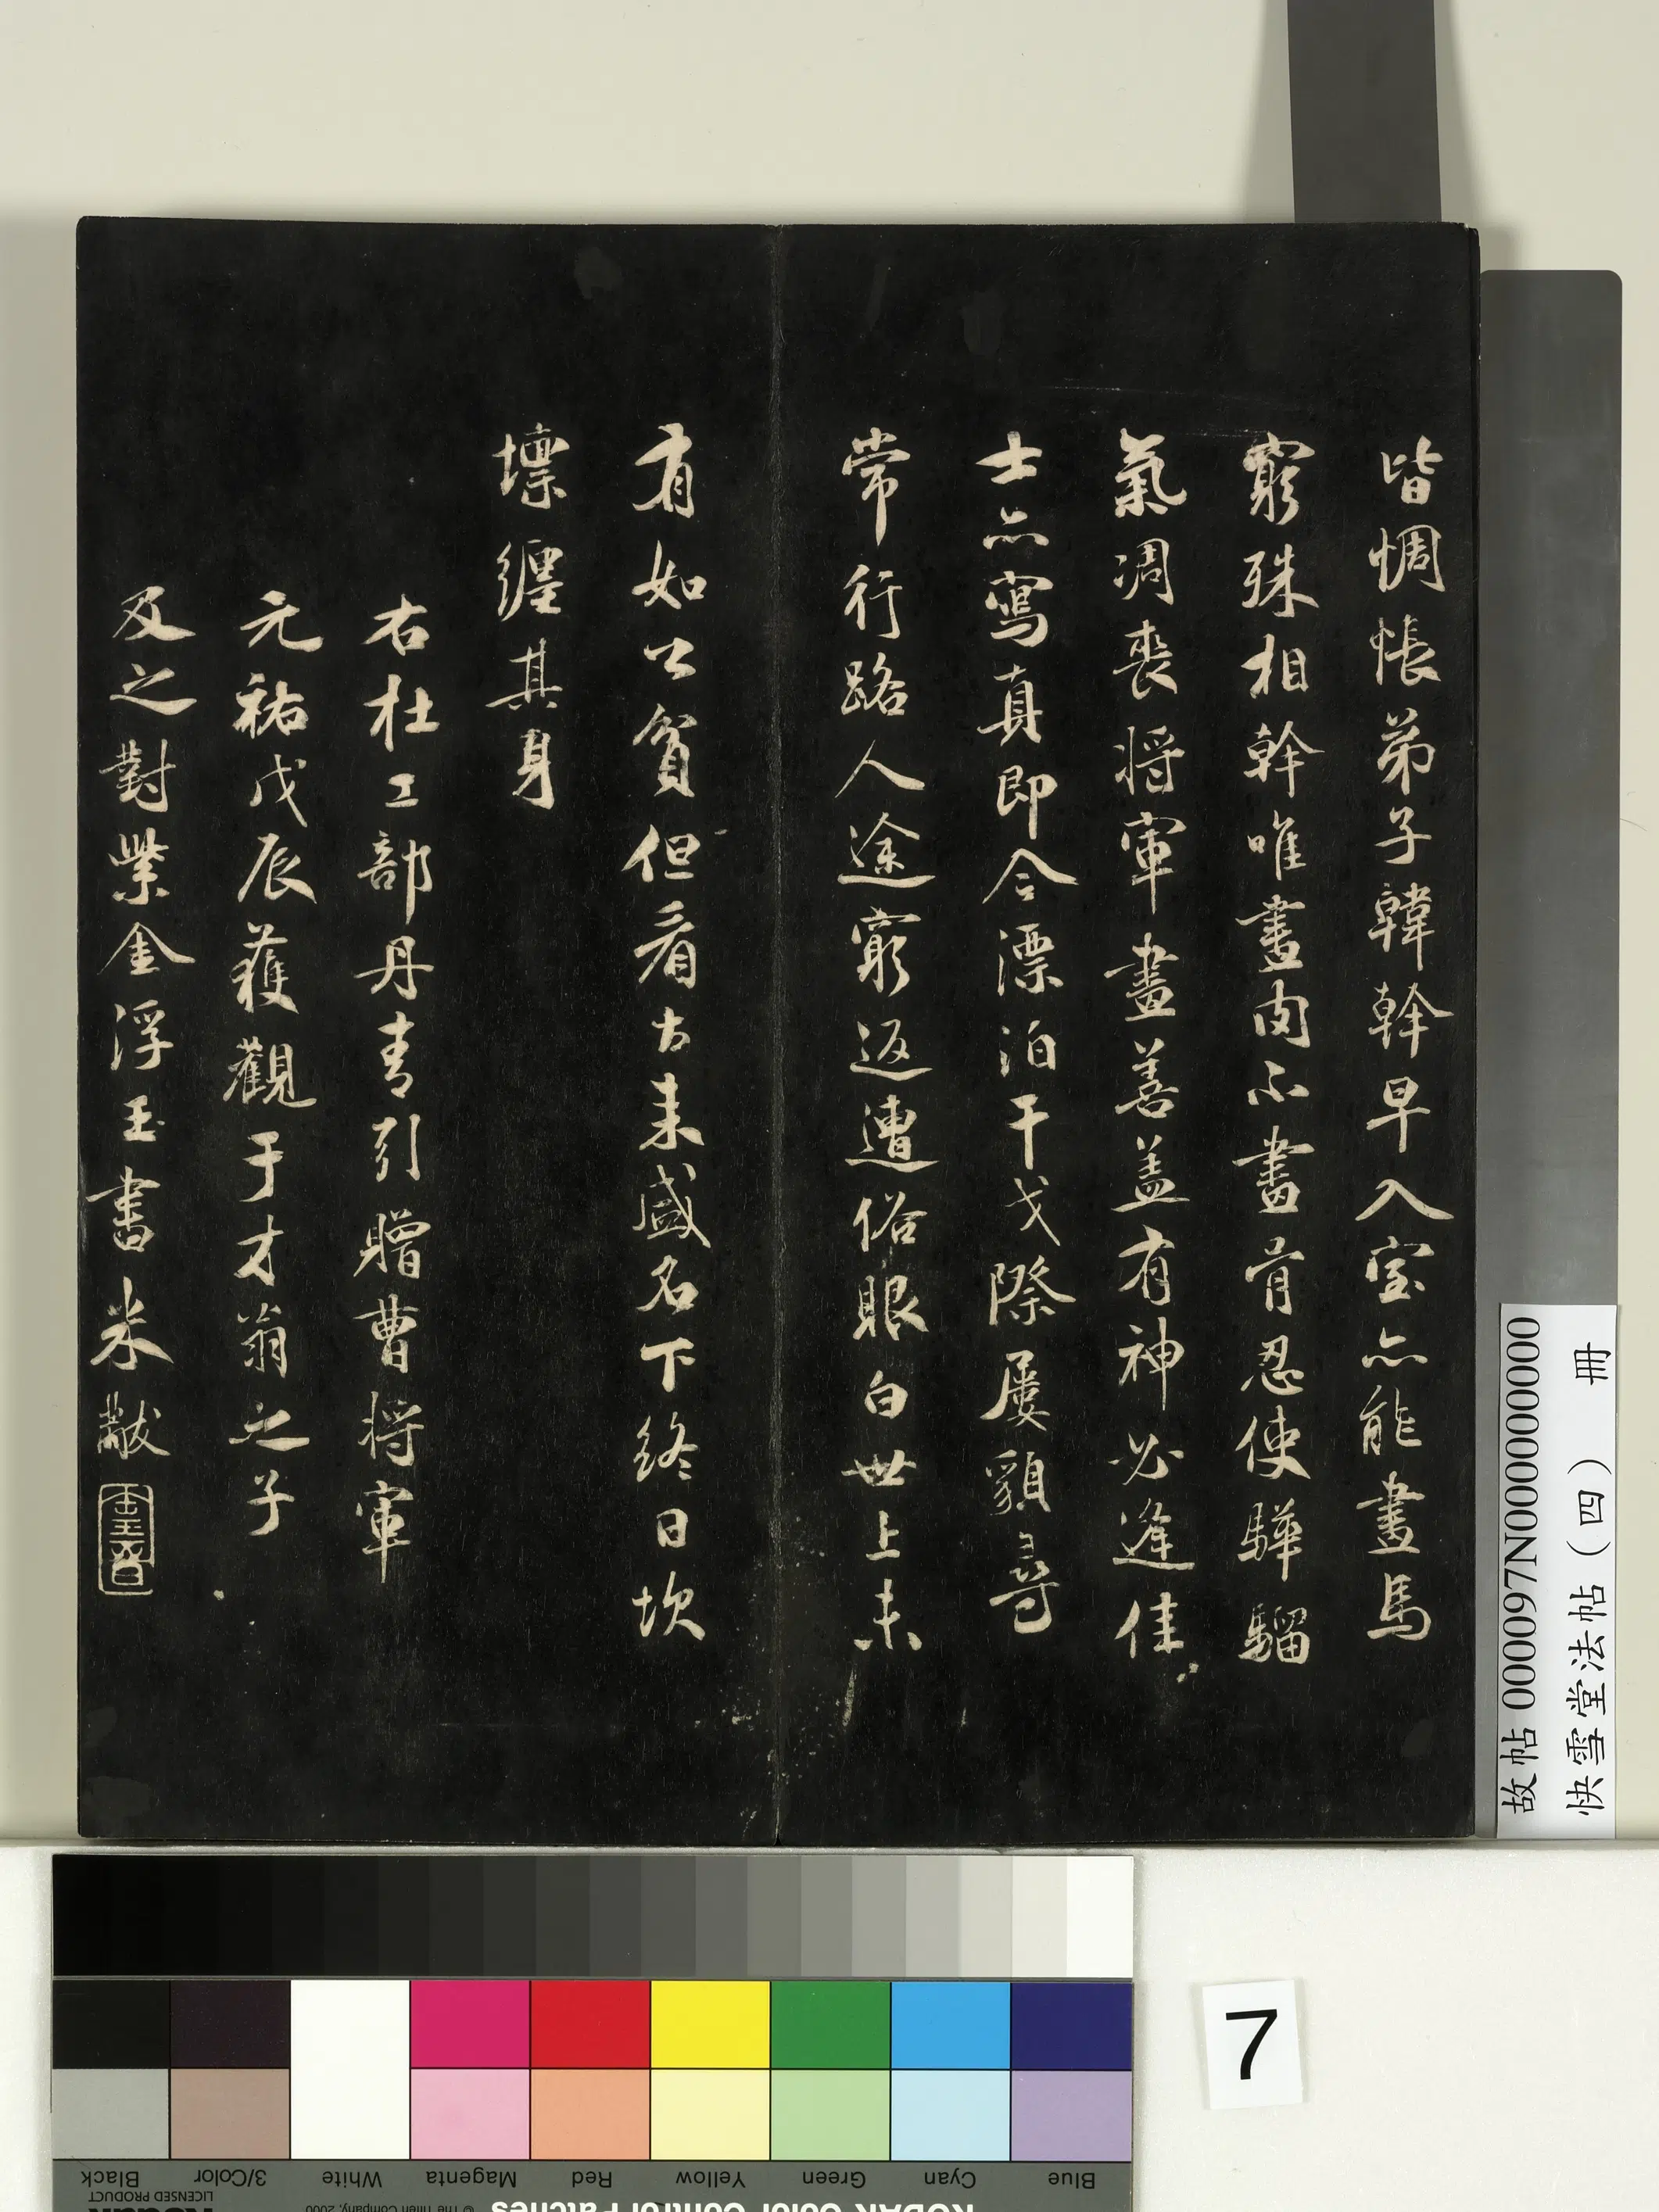 皆惆悵弟子韓幹早入室亦能畫馬
窮殊相幹唯畫肉不畫骨忍使驊騮
氣凋喪將軍畫善蓋有神必逢佳
士亦寫真即今漂泊干戈際屢貌尋
常行路人途窮返遭俗眼白世上未
有如公貧但看古来盛名下終日坎
壈纏其身
右杜工部丹青引贈曹將軍
元祐戊辰獲觀于才翁之子
及之對紫金浮玉書米黻
故帖 000097N000000000000
快雪堂法帖（四） 冊
7
Black
3/Color
White
Magenta
Red
Yellow
Green
Cyan
Blue
LICENSED PRODUCT
© The Tiffen Company, 2000
KODAK Color Control Patches